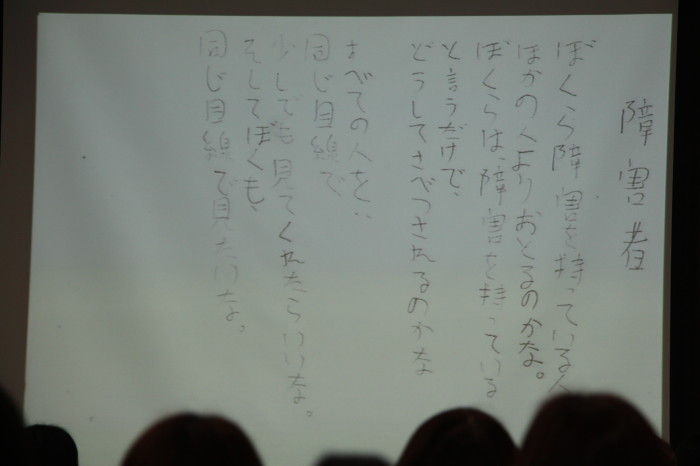 障害者
ぼくら障害を持っている人
ほかの人よりおとるのかな。
ぼくらは、障害を持っている
と言うだけで、
どうしてさべつされるのかな
すべての人を‥
同じ目線で
少しでも見てくれたらいいな。
そしてぼくも、
同じ目線で見たいな。